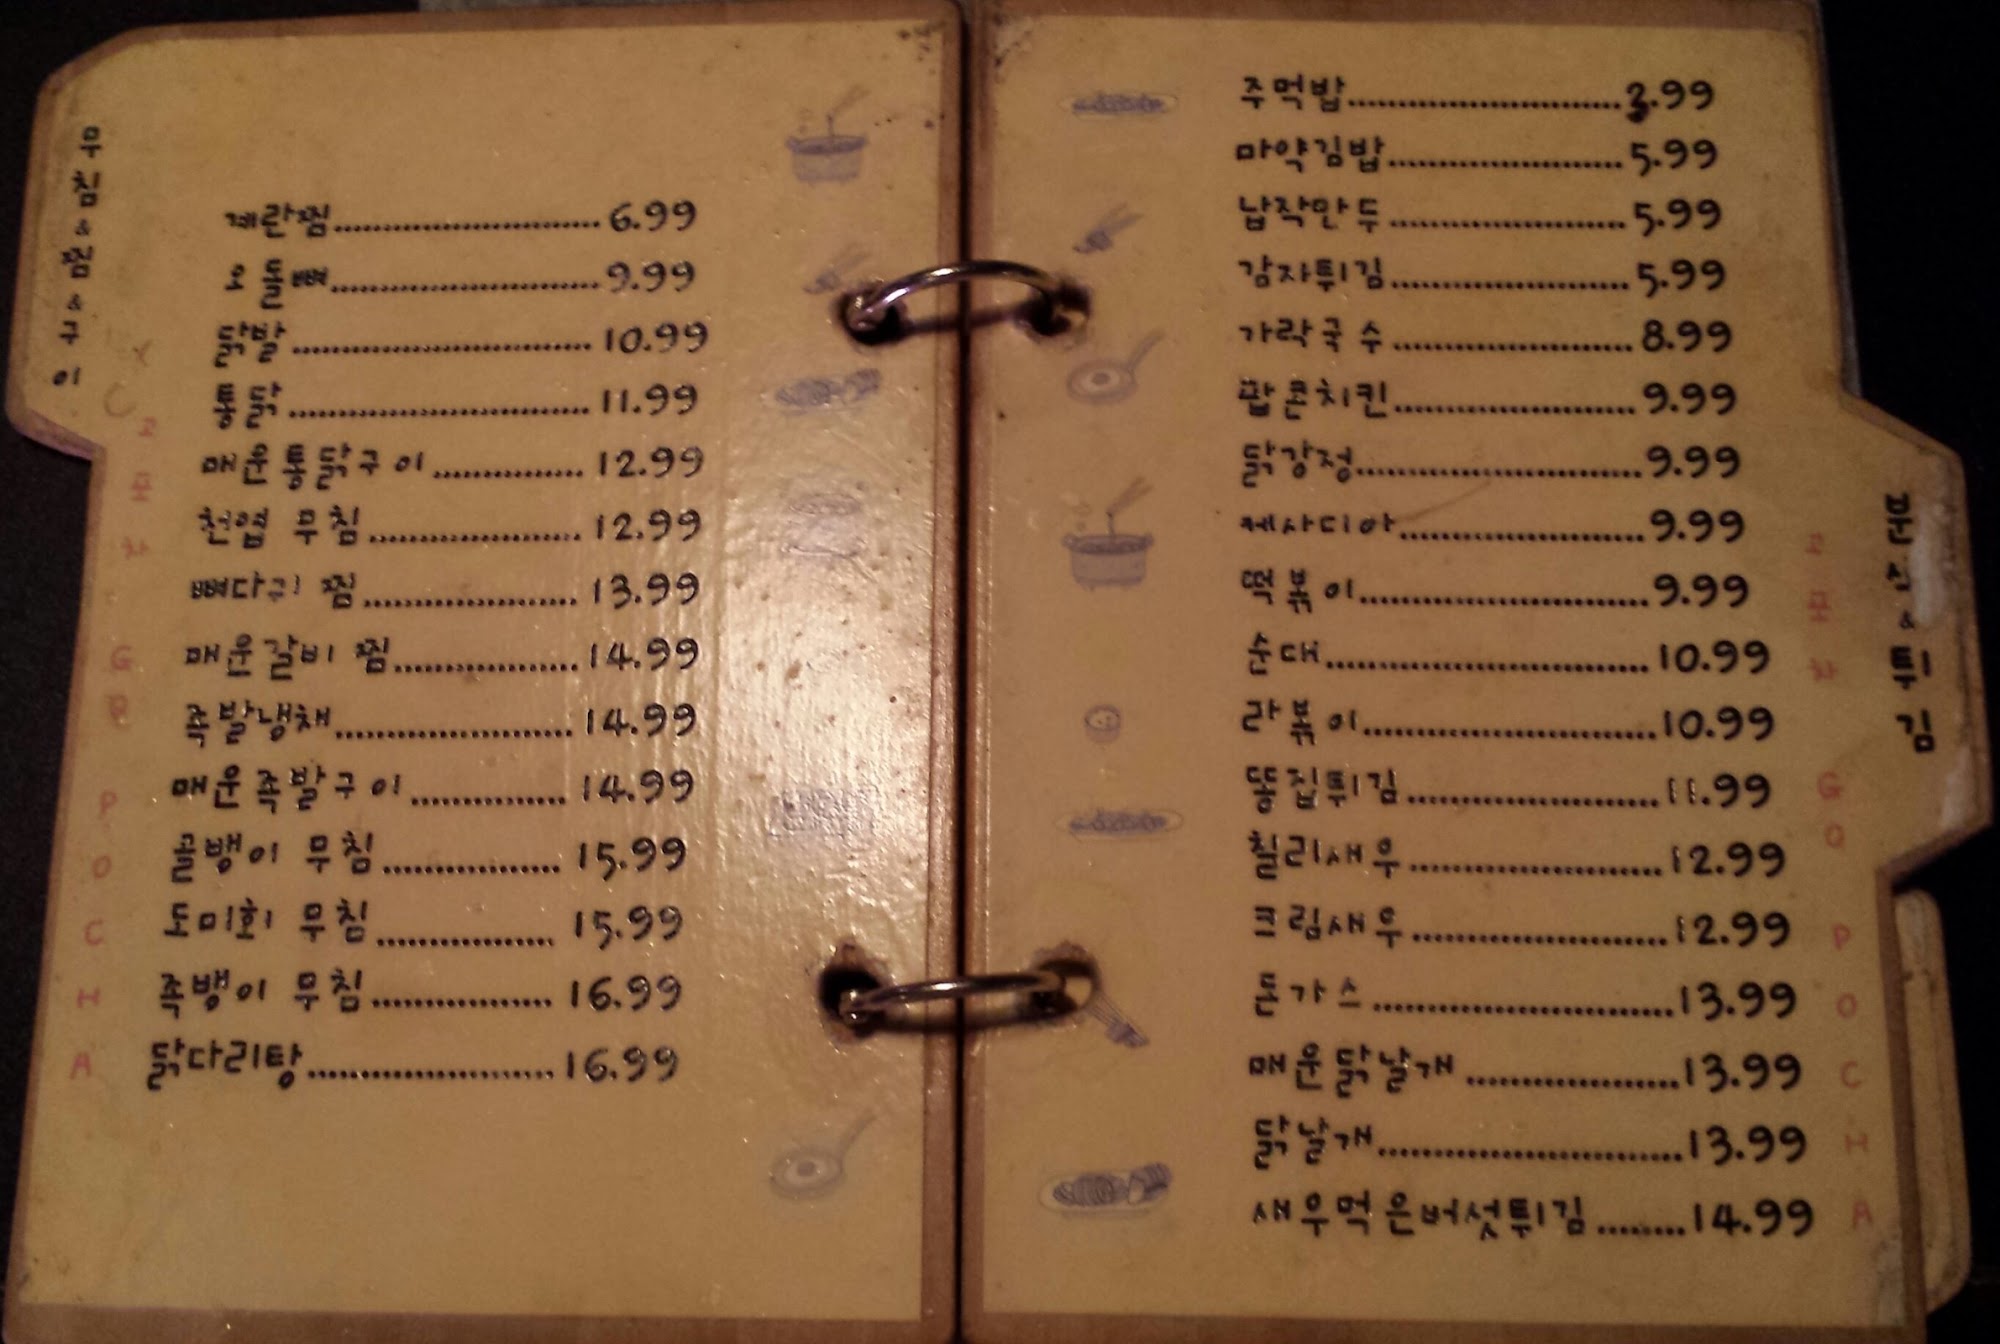 무침&찜&구이
계란찜 6.99
오돌뼈 9.99
닭발 10.99
통닭 11.99
매운통닭구이 12.99
천엽 무침 12.99
뼈다귀 찜 13.99
매운갈비 찜 14.99
족발냉채 14.99
매운족발구이 14.99
골뱅이 무침 15.99
도미회 무침 15.99
족뱅이 무침 16.99
닭다리탕 16.99
고포차
GO POCHA
주먹밥 3.99
마약김밥 5.99
납작만두 5.99
감자튀김 5.99
가락국수 8.99
팝콘치킨 9.99
닭강정 9.99
케사디아 9.99
떡볶이 9.99
순대 10.99
라볶이 10.99
똥집튀김 11.99
칠리새우 12.99
크림새우 12.99
돈가스 13.99
매운닭날개 13.99
닭날개 13.99
새우먹은버섯튀김 14.99
분식&튀김
고포차
GO POCHA